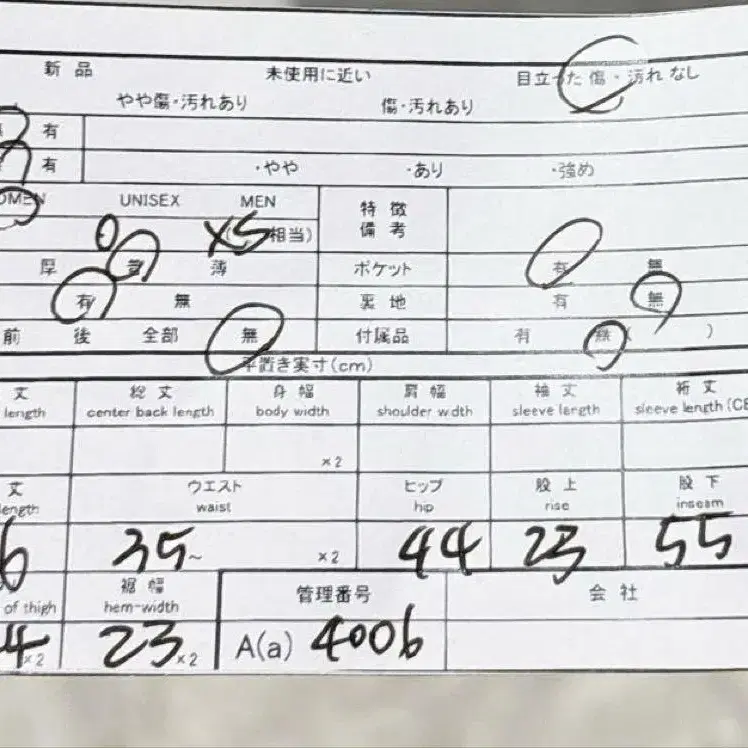 新品 未使用に近い 目立った傷・汚れなし
やや傷・汚れあり 傷・汚れあり
有
有 ・やや ・あり ・強め
UNISEX MEN 特徴
0 XS 相当) 備考
厚 普 薄 ポケット 有 無
有 無 裏地 有 無
前 後 全部 無 付属品 有 無( )
平置き実寸(cm)
丈 総丈 身幅 肩幅 袖丈 裄丈
length center back length body width shoulder width sleeve length sleeve length (CB
×2
丈 ウエスト ヒップ 股上 股下
length waist hip rise inseam
6 35~ ×2 44 23 55
裾幅 管理番号 会社
of thigh hem-width
4 ×2 23 ×2 A(a) 4006